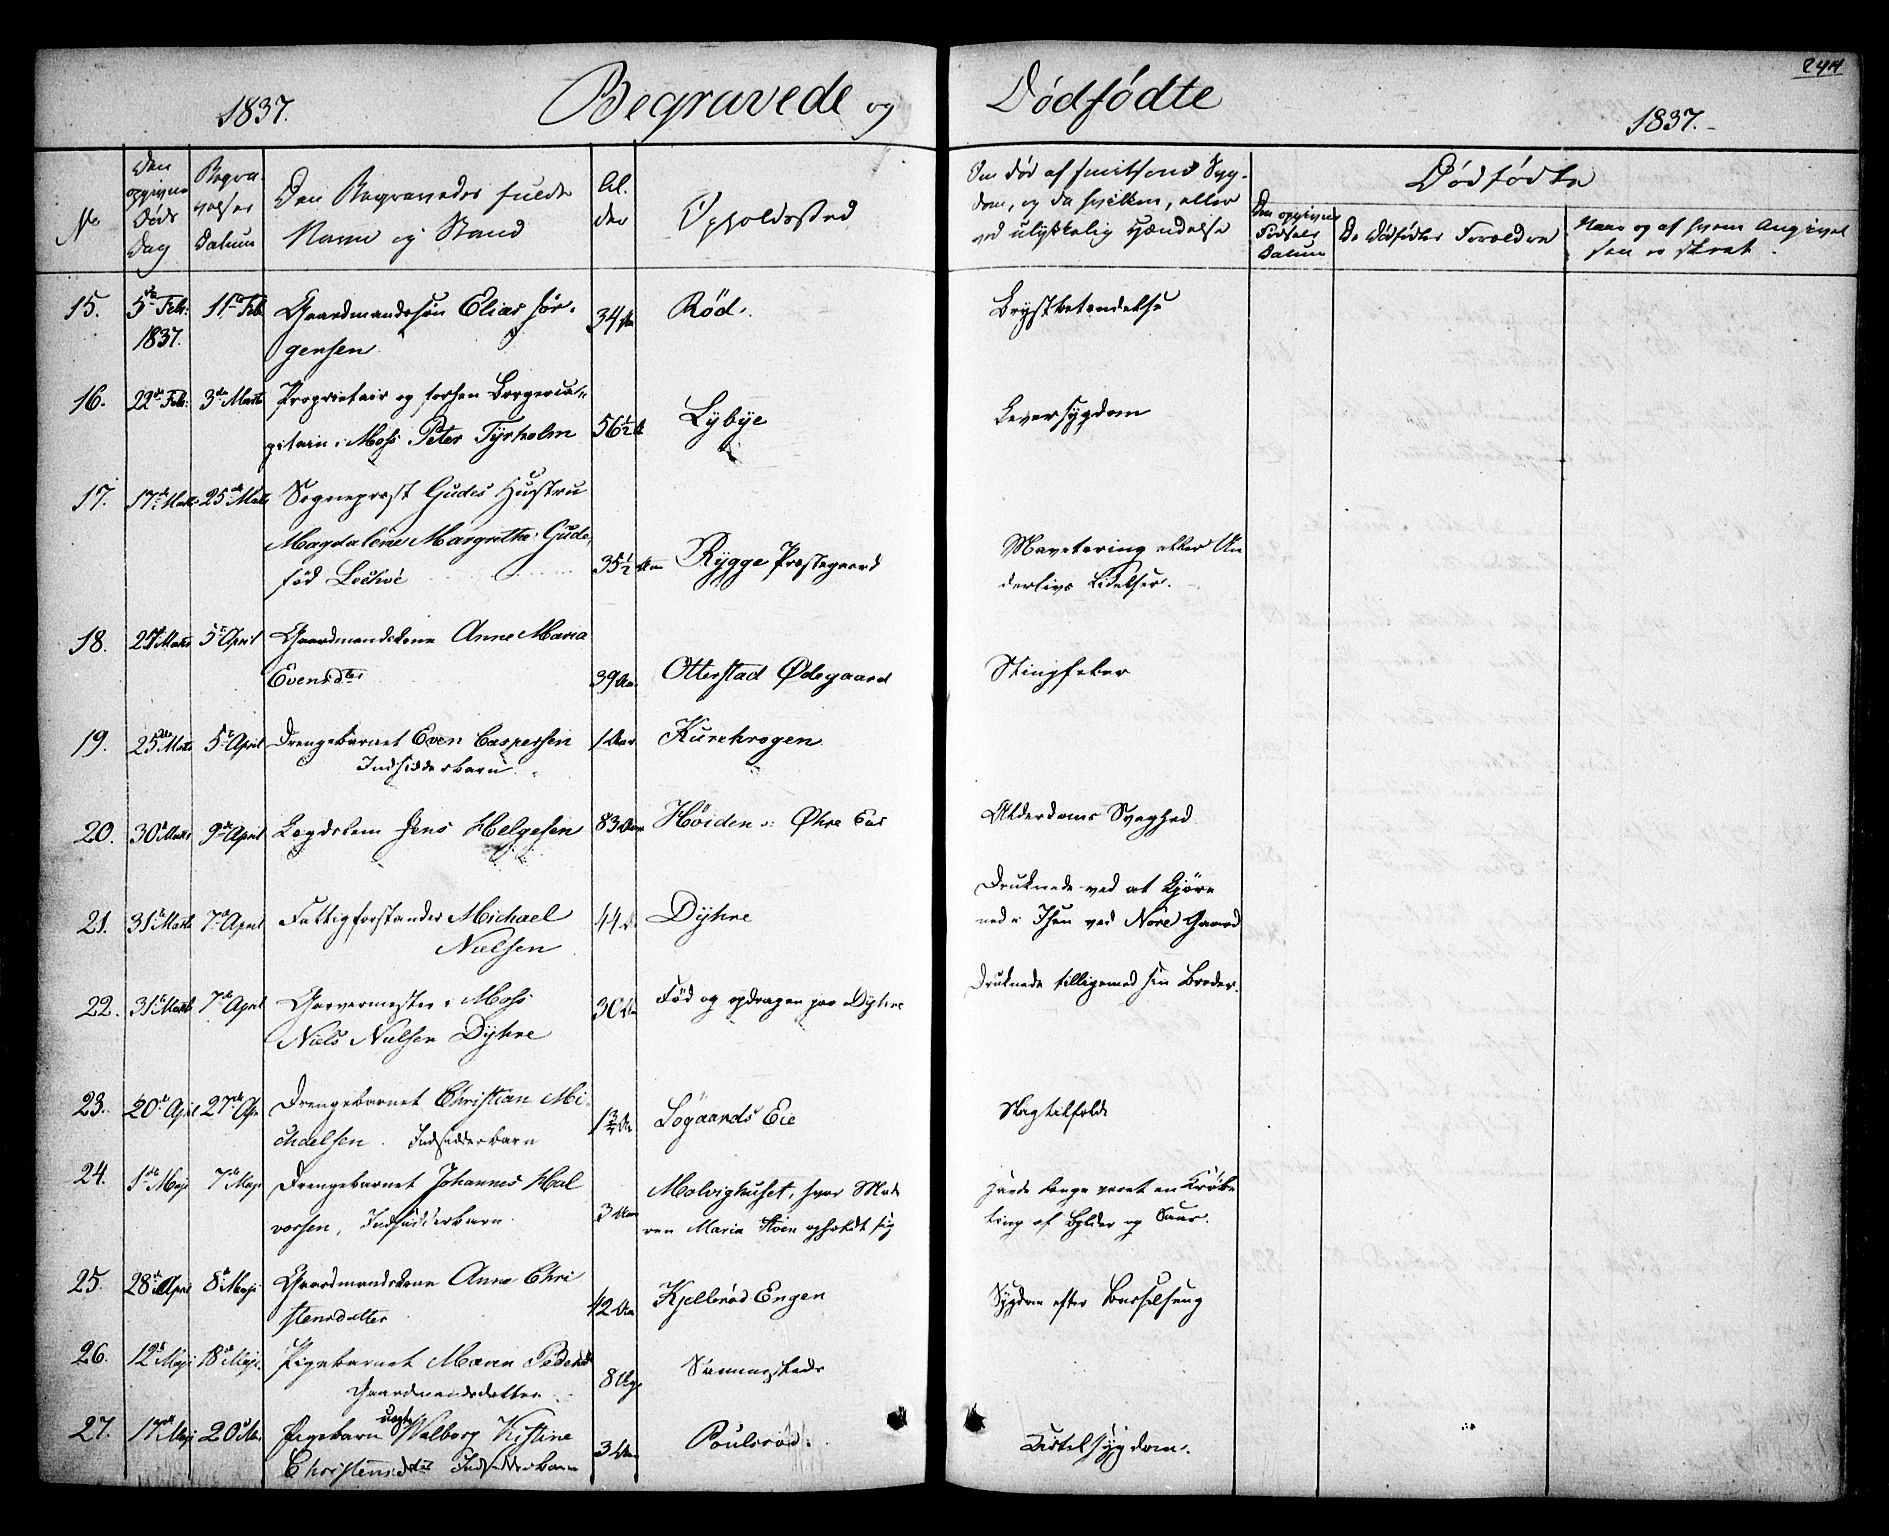 1837.
Begravede og Dødfødte
1837.
244
No
Den opgivne Døds Dag
Begravelses Datum
Den Begravedes fulde Navn og Stand
Alder
Opholdssted
Om død af smitsom Sygdom, og da hvilken, eller ved ulykkelig Hændelse
Dødfødte
Den opgivne Fødsels Datum
De Dødfødtes Forældre
Naar og af hvem Angivelsen er skeet.
15. 5te Feb: 1837. 11te Feb Gaardmandssøn Elias Jörgensen 34 Aar Röd. Brystbetændelse
16. 22de Feb: 3de Marts Proprietair og forhen Borgercapitain i Moss Peter Tyrholm 56½ A Lybye Leversygdom
17. 17de Marts 25de Marts Sognepræst Gudes Hustru
Magdalene Margrethe Gude,
fød 35½ Aar Rygge Præstegaard Mavetæring eller Underlivs Lidelser.
18. 27 Marts 5te April Gaardmandskone Anne Maria
Evensdtr 39 Aar Otterstad Ødegaard Stingfeber
19. 25de Marts 5te April Drengebarnet Even Caspersen
Indsidderbarn 1 Aar Kurekrogen
20. 30te Marts 9de April Lægdslem Jens Helgesen 83 Aar Höiden Alderdoms Svaghed
21. 31te Marts 7de April Fattigforstander Michael
Nielsen 44 A Dyhre Druknede ved at kjøre
ned i Isen ved Nore Gaard
22. 31te Marts 7de April Garvermester i Moss
Niels Nielsen Dyhre 30 Aar Fød og opdragen paa Dyhre Druknede tilligemed sin Broder.
23. 20de April 27de Apr Drengebarnet Christian Michaelsen. Indsidderbarn 1 Aar Sogaards Eie Slagtilfælde
24. 1de Maji 7de Maji Drengebarnet Johannes Halvorsen, Indsidderbarn 3 Aar Molvighuset, hvor Moderen Maria opholdt sig
havde længe været en Krøbling af Bylder og Saar.
25. 28de April 8de Maji Gaardmandskone Anne Christensdatter 42 Aar Kjellerød Engen Sygdom efter Barselseng
26. 12te Maji 18de Maji. Pigebarnet Maren Pedersd
Gaardmandsdatter 8 Uger
27. 17de Maji 20 Ma. Pigebarn uægte Walborg Kistine
Christensdatter Indsidderbarn 3 Aar Poulsrød.